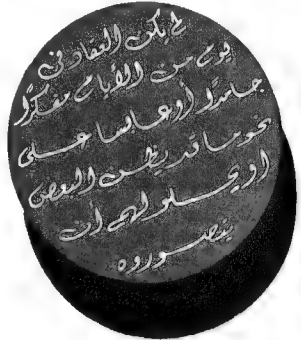 لم يكن العقاد في
يوم من الأيام مفكرًا
جامدًا أو عابسا على
نحو ما قد يظن البعض
او يحلو لهم أن
يتصوروه